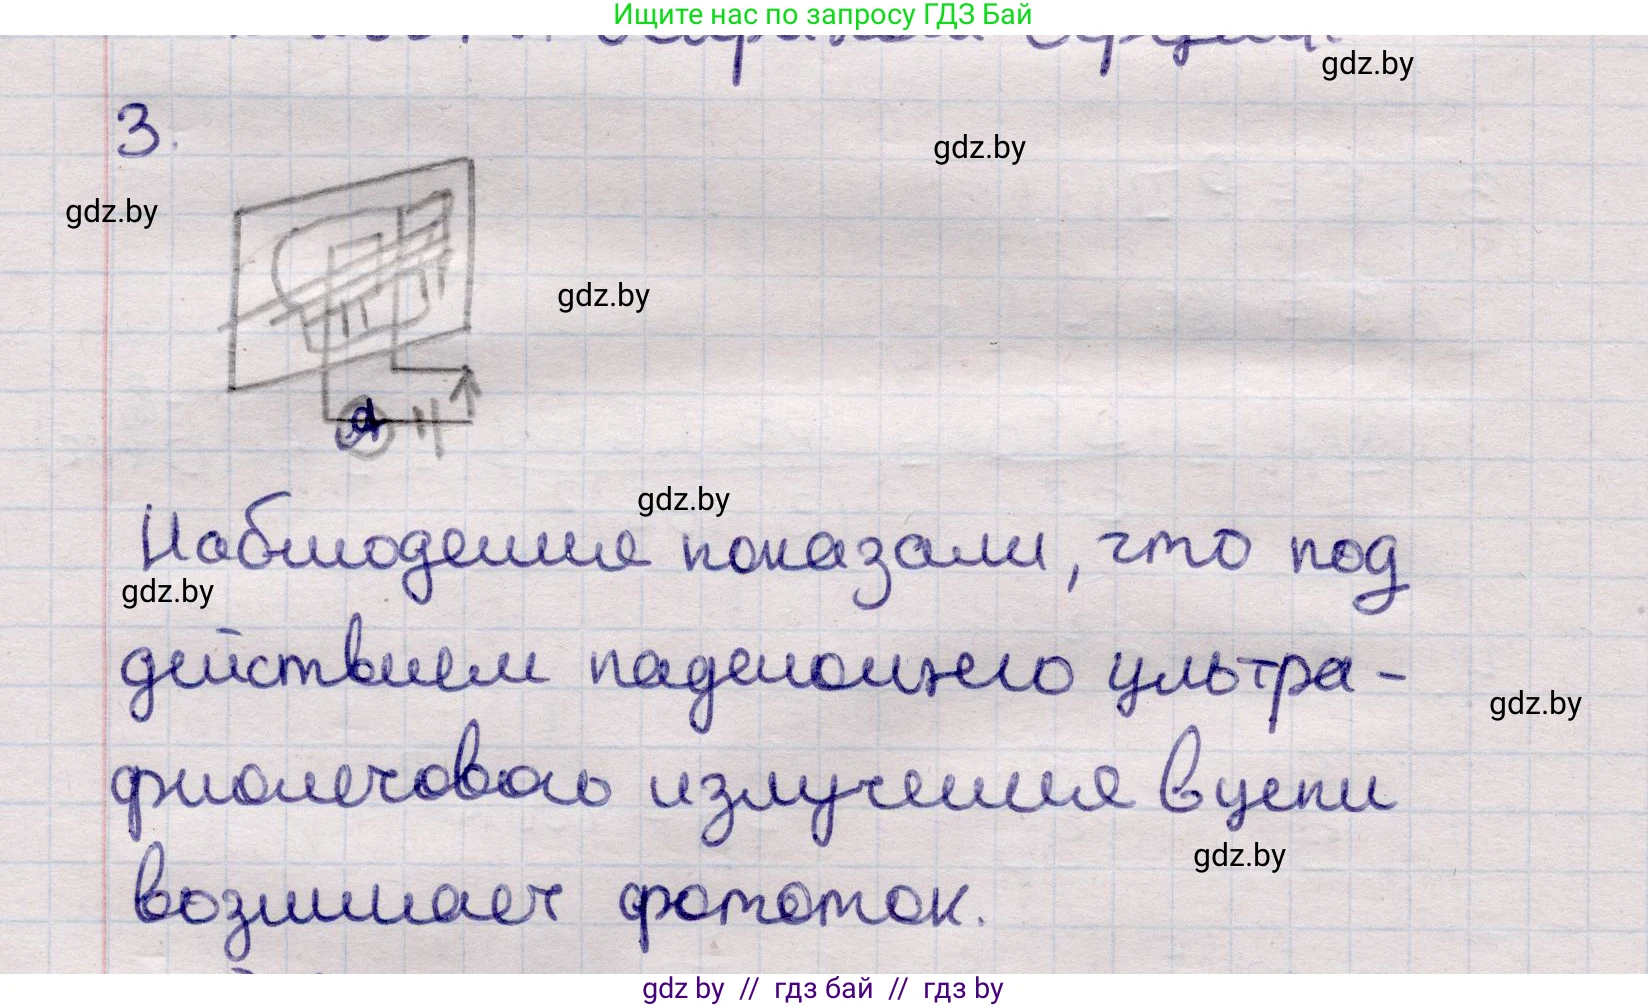 Ищите нас по запросу ГДЗ Бай
gdz.by
3.
gdz.by
gdz.by
gdz.by
A
gdz.by
Наблюдения показали, что под
gdz.by
действием падающего ультра-
gdz.by
фиолетового излучения в цепи
gdz.by
возникает фототок.
gdz.by // гдз бай // гдз by